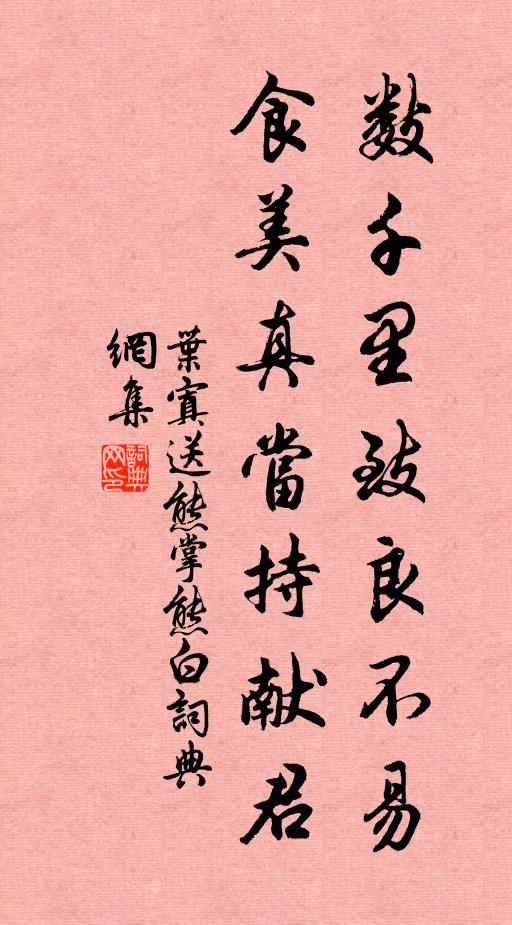 數千里致良不易
食美真當持献君
葉寘送熊掌熊白詞典
網集
詞典
网印